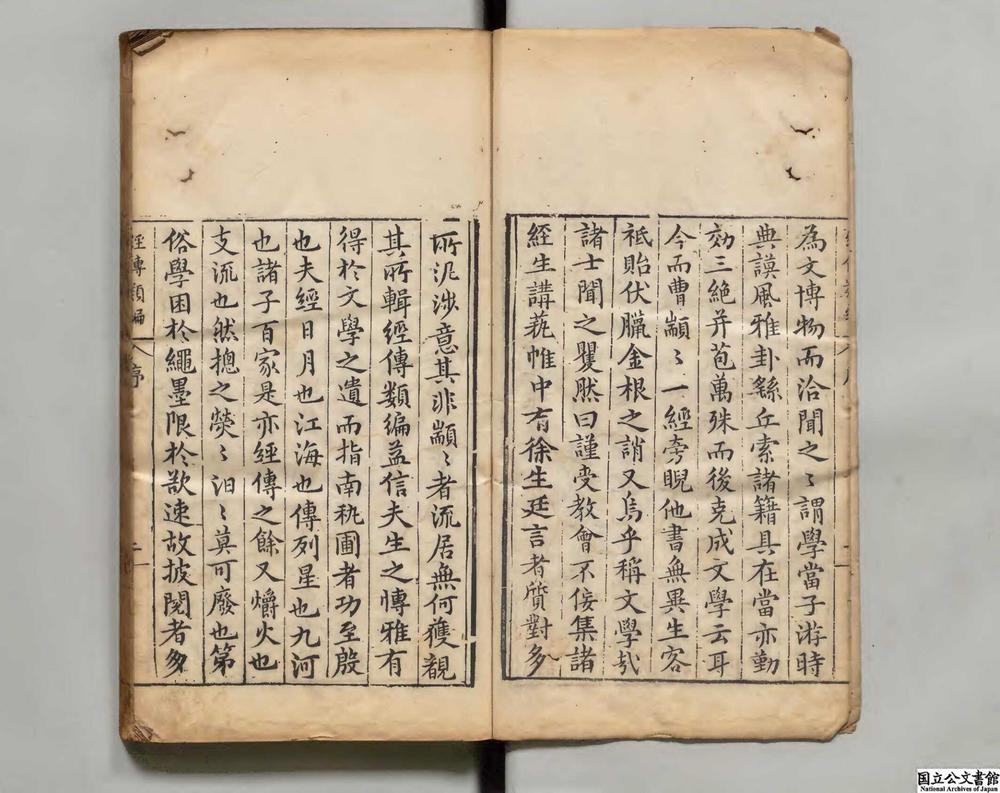 為文博物而洽聞之〻謂學當子游時
典謨風雅卦繇丘索諸籍具在當亦勤
効三絶并苞萬殊而後克成文學云耳
今而曹顓〻一經旁睨他書無異生客
祗貽伏臘金根之誚又烏乎稱文學㢤
諸士聞之瞿然曰謹受教會不佞集諸
經生講蓺帷中有徐生廷言者質對多
所泥涉意其非顓〻者流居無何獲觀
其所輯經傳類編益信夫生之愽雅有
得於文學之遺而指南秇圃者功至殷
也夫經日月也江海也傳列星也九河
也諸子百家是亦經傳之餘又爝火也
支流也然摠之熒〻汩〻莫可廢也第
俗學困於繩墨限於欲速故披閱者多
經傳類編 序 二
国立公文書館
National Archives of Japan